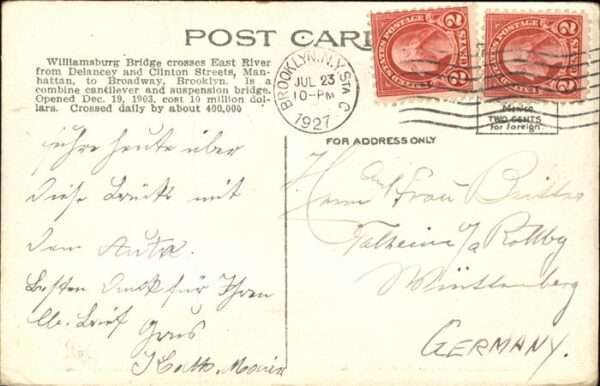 POST CARD
Williamsburg Bridge crosses East River
from Delancey and Clinton Streets, Man-
hattan, to Broadway, Brooklyn. Is a
combine cantilever and suspension bridge.
Opened Dec. 19, 1903, cost 10 million dol-
lars. Crossed daily by about 400,000
BROOKLYN, N.Y. STA. C
JUL 23
10-PM
1927
UNITED STATES POSTAGE
2 CENTS 2
UNITED STATES POSTAGE
2 CENTS 2
Mexico.
TWO CENTS
for foreign.
FOR ADDRESS ONLY
führe heute über
diese Brücke mit
dem Auto.
Besten Dank für Ihren
lb. Brief Gruss
Kath. Maria
Herrn Frau
Württemberg
GERMANY.